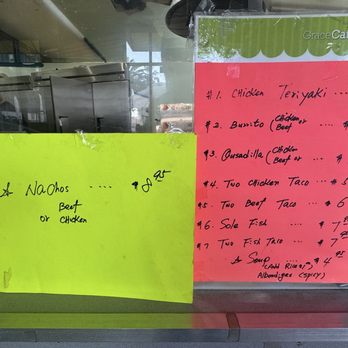 A Nachos .... $8.95
Beef
or Chicken
GraceCa
#1. Chicken Teriyaki ...
#2. Burrito (Chicken or Beef ...
#3. Quusadilla (Chicken Beef or ... $
#4. Two Chicken Taco .. $5
#5. Two Beef Taco ... $6
#6. Sole Fish ... $7
#7. Two Fish Taco ... $
A Soup .... $4.95
(Add Rice
Albondigas (Spicy)